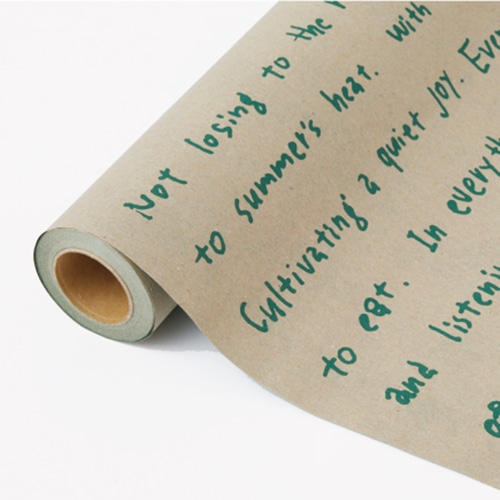 Not losing to the
to summer's heat. with
Cultivating a quiet joy.
to eat. In
and